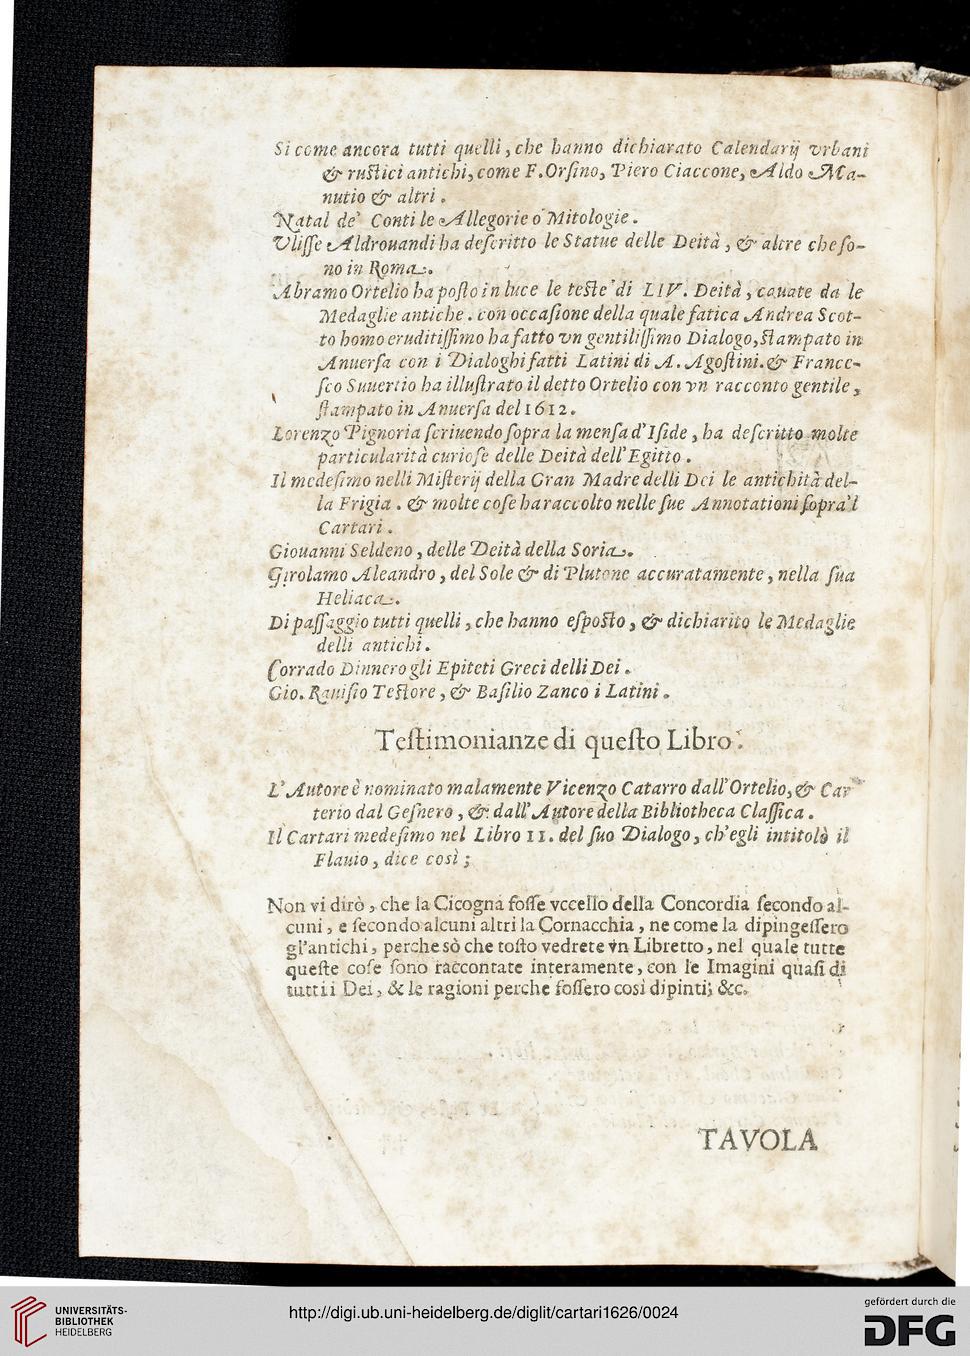 Si come ancora tutti quelli, che hanno dichiarato Calendarij vrbani
& ruſtici antichi, come F. Orſino, Piero Ciaccone, Aldo Ma-
nutio & altri.
Natal de' Conti le Allegorie ò Mitologie.
Vliſſe Aldrouandi ha deſcritto le Statue delle Deità, & altre che ſo-
no in Roma.
Abramo Ortelio ha poſto in luce le teſte di LIV. Deità, cauate da le
Medaglie antiche. con occaſione della quale fatica Andrea Scot-
to homo eruditiſſimo ha fatto vn gentiliſſimo Dialogo, ſtampato in
Anuerſa con i Dialoghi fatti Latini di A. Agoſtini. & France-
ſco Suuertio ha illuſtrato il detto Ortelio con vn racconto gentile,
ſtampato in Anuerſa del 1612.
Lorenzo Pignoria ſcriuendo ſopra la menſa d'Iſide, ha deſcritto molte
particularità curioſe delle Deità dell'Egitto.
Il medeſimo nelli Miſterij della Gran Madre delli Dei le antichità del-
la Frigia. & molte coſe ha raccolto nelle ſue Annotationi ſopra'l
Cartari.
Giouanni Seldeno, delle Deità della Soria.
Girolamo Aleandro, del Sole & di Plutone accuratamente, nella ſua
Heliaca.
Di paſſaggio tutti quelli, che hanno eſpoſto, & dichiarito le Medaglie
delli antichi.
Corrado Dinnero gli Epiteti Greci delli Dei.
Gio. Rauiſio Teſtore, & Baſilio Zanco i Latini.
Teſtimonianze di queſto Libro.
L'Autore è nominato malamente Vicenzo Catarro dall'Ortelio, & Car
terio dal Geſnero, & dall'Autore della Bibliotheca Claſſica.
Il Cartari medeſimo nel Libro II. del ſuo Dialogo, ch'egli intitolò il
Flauio, dice così;
Non vi dirò, che la Cicogna foſſe vccello della Concordia ſecondo al-
cuni, e ſecondo alcuni altri la Cornacchia, ne come la dipingeſſero
gl'antichi, perche sò che toſto vedrete vn Libretto, nel quale tutte
queſte coſe ſono raccontate interamente, con le Imagini quaſi di
tutti i Dei, & le ragioni perche foſſero così dipinti; &c.
TAVOLA
UNIVERSITÄTS-
BIBLIOTHEK
HEIDELBERG
http://digi.ub.uni-heidelberg.de/diglit/cartari1626/0024
gefördert durch die
DFG